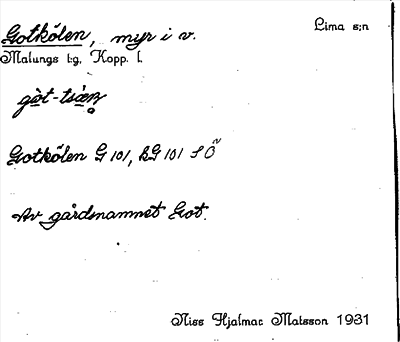 Gotkölen, myr i v. Lima s:n
Malungs t:g, Kopp. l.
gòt-tsàen̥
Gotkölen G 101, kG 101 SÖ
Av gårdsnamnet Got.
Niss Hjalmar Matsson 1931